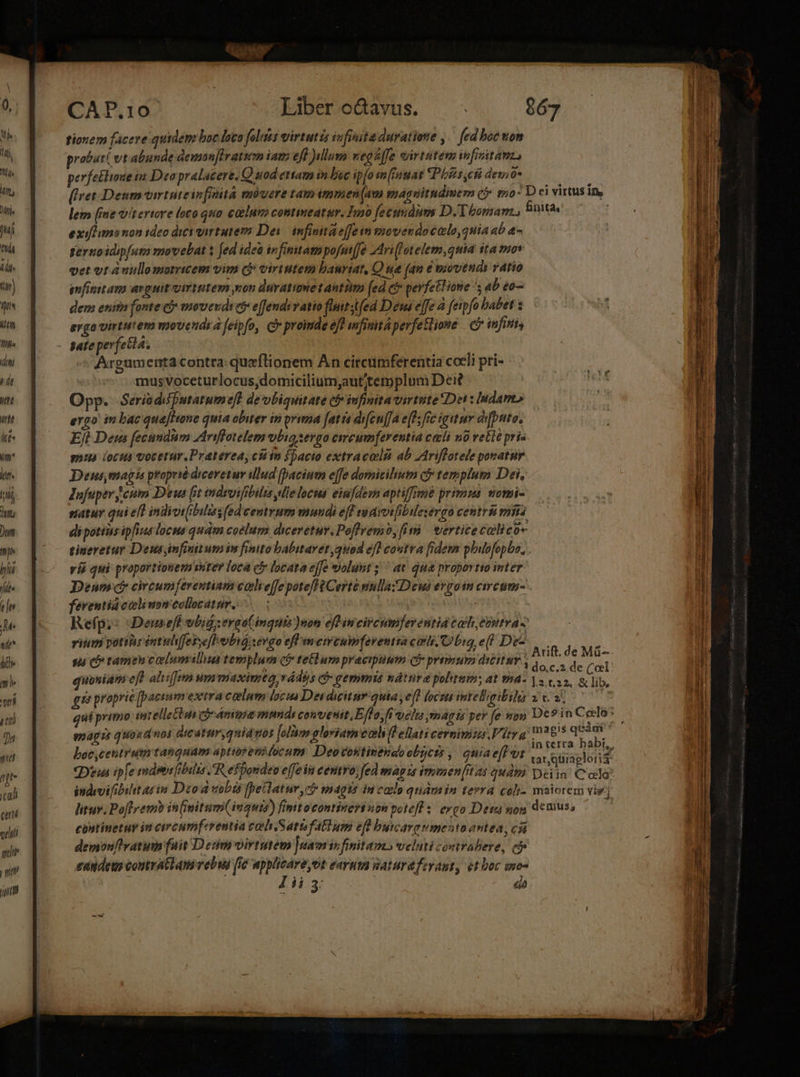 CAP.10 Liber octavus. 867
tionem facere quidem hoc loco solius virtutis infinitæ duratione, sed hoc non
probat( ut abunde demonstratum iam est )illum negasse virtutem infinitam
perfectione in Deo præ
lem sine ulteriore loco quo cœlum contineatur. Imo secundum D. Thomam
Dei virtus in
finita.
existimo non ideo dici virtutem Dei infinitã esse in movendo cœlo, quia ab æ-
terno idipsum movebat ; sed ideo infinitam potuisse Aristotelem, quia ita mo-
vet ut a nullo motricem vim & virtutem hauriat, Quæ sane movendi ratio
infinitam arguit virtutem, non duratione tantùm sed & perfectione ; ab eo-
dem enim fonte & movendi & essendi ratio fluit ; sed Deus esse à seipso habet :
ergo virtutem movendi à seipso, & proinde est infinitã perfectione & infini-
tate perfecta.
Argumenta contra quæstionem An circumferentia cœli pri-
mus vocetur locus, domicilium, aut templum Dei?
Opp. Seriò disputatum est de ubiquitate & infinita virtute Dei : ludamus
ergo in hac quæstione quia obiter in prima satis discussa est ; sic igitur disputo.
Est Deus secundùm Aristotelem ubiq; ergo circumferentia cœli nõ rectè pri-
mus locus vocetur. Præterea, cũ in spacio extra cœlũ ab Aristotele ponatur
Deus, magis propriè diceretur illud spacium esse domicilium & templum Dei,
Insuper, cum Deus sit indivisibilis, ille locus eiusdem aptissimè primus nomi-
natur qui est indivisibilis ; sed centrum mundi est indivisibile ; ergo centrũ mũ-
di potiùs ipsius locus quàm cœlum diceretur. Postremò, si in vertice cœli co-
tineretur Deus, infinitum in finito habitaret, quod est contra fidem philosopho,
rũ qui proportionem inter loca & locata esse volunt ; at quæ proportio inter
Deum & circumferentiam cœli esse potest? Certè nulla; Deus ergo in circum-
ferentiã cœli non collocatur.
Resp. Deus est ubiq; ergo( inquis )non est in circumferentia cœli, contra-
rium potiùs intulisses, est ubiq; ergo est in circumferentia cœli, Ubiq, est De-
us & tamen cœlum illius templum & tectum præcipuum & primum dicitur ;
Arist. de Mũ-
do, c.2. de Cœl
quoniam est altissima una maximéq, rádijs & gemmis natura politum ; at ma-
1. t. 22. & lib.
gis propriè spacium extra cœlum locus Dei dicitur quia, est locus intelligibilis
2. t. 2.
qui primo intellectui & animæ mundi convenit, Esto, si velis, magis per se non
Deº in Cœlo
magis quoad nos dicatur, quia nos solùm gloriam cœli stellati cernimus, Vltra
magis quàm
in terra habi,
hoc, centrum tanquam aptiorem locum Deo continendo obijcis, quia est ut
tat, quia gloriã
Deus ipse indivisibilis, Respondeo esse in centro, sed magis immensitas quàm
Dei in Cœlo
indivisibilitas in Deo à nobis spectatur, & magis in cœlo quàm in terra coli-
maiorem vi-
tur. Postremò infinitum( inquis ) finito contineri non potest ; ergo Deus non
demus.
continetur in circumferentia cœli, Satisfactum est huic argumento antea, cũ
demonstratum fuit Deum virtutem suam infinitam veluti contrahere, &
eandem contractam rebus sic applicare, ut earum natura ferant, et hoc mo-
Iii 3 do